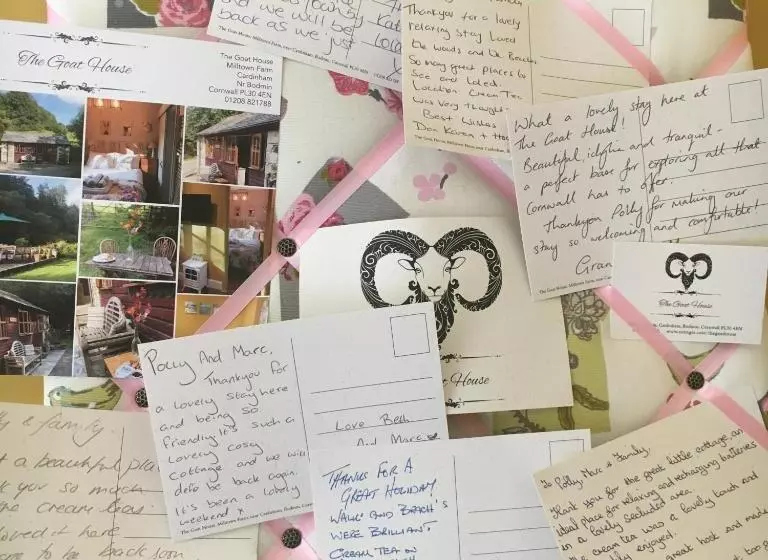 The Goat House
The Goat House
Milltown Farm
Cardinham
Nr Bodmin
Cornwall PL30 4EN
01208 821788
and we will be
back as we just
Thankyou for a lovely
relaxing Stay Loved
the woods and the Beaches
So many great places to
See and
Location. Cream Tea
was Very Thought
Best Wishes
Don Karen +
What a lovely stay here at
The Goat House!
Beautiful, idyllic and tranquil -
a perfect base for exploring all that
Cornwall has to offer.
Thankyou Polly for making our
stay so welcoming and comfortable!
Gran
The Goat House
Cardinham, Bodmin, Cornwall PL30 4EN
House
Polly And Marc,
Thankyou for
a lovely stay here
and being so
friendly it's such a
lovely cosy
cottage and we will
defo be back again.
It's been a lovely
weekend x
Love Beth
And Marc
The Goat House, Milltown Farm, near Cardinham, Bodmin,
y & family.
a beautiful pla
k you so much
the cream teas.
loved it here
to be back soon
THANKS FOR A
GREAT HOLIDAY.
WALKS AND BEACH'S
WERE BRILLIANT
CREAM TEA ON
To Polly, Marc & Family,
Thank you for the great little cottage, an
ideal place for relaxing and recharging batteries
in a lovely secluded area.
cream tea was a lovely touch and
enjoyed.
host and made
too